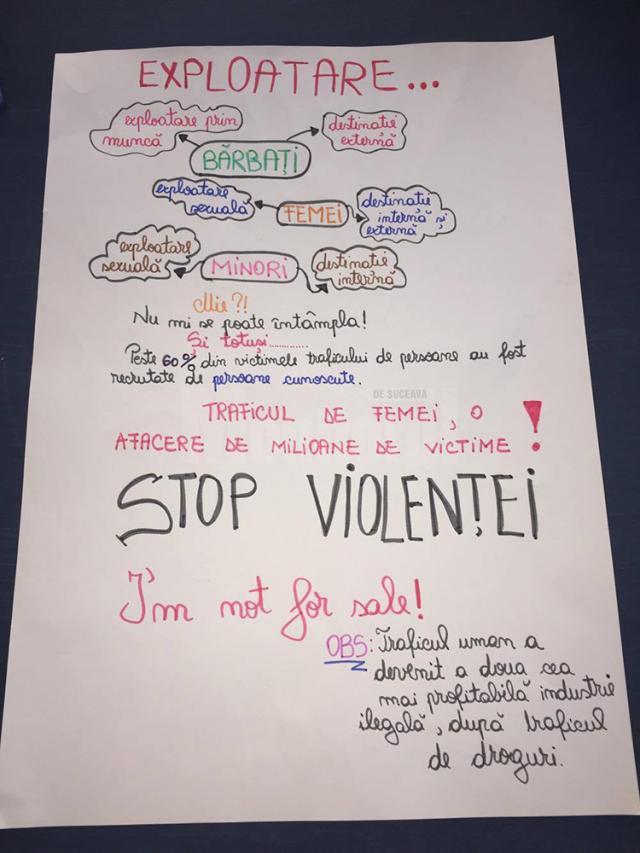 EXPLOATARE...
exploatare prin
muncă
destinație
externă
BĂRBAȚI
exploatare
sexuală
FEMEI
destinație
internă și
externă
exploatare
sexuală
MINORI
destinație
internă
Mie?!
Nu mi se poate întâmpla!
Și totuși............
Peste 60% din victimele traficului de persoane au fost
recrutate de persoane cunoscute.
DE SUCEAVA
TRAFICUL DE FEMEI, O
AFACERE DE MILIOANE DE VICTIME!
STOP VIOLENȚEI
I'm not for sale!
OBS: Traficul uman a
devenit a doua cea
mai profitabilă industrie
ilegală, după traficul
de droguri.